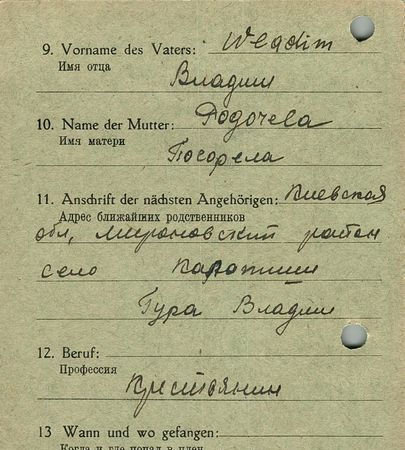 9. Vorname des Vaters: Wladim
Имя отца
Владим
10. Name der Mutter:
Имя матери
11. Anschrift der nächsten Angehörigen: Киевская
Адрес ближайших родственников
обл, Мироновский район
село Карапиши
Гура Владим
12. Beruf:
Профессия
Крестьянин
13 Wann und wo gefangen:
Когда и где попал в плен